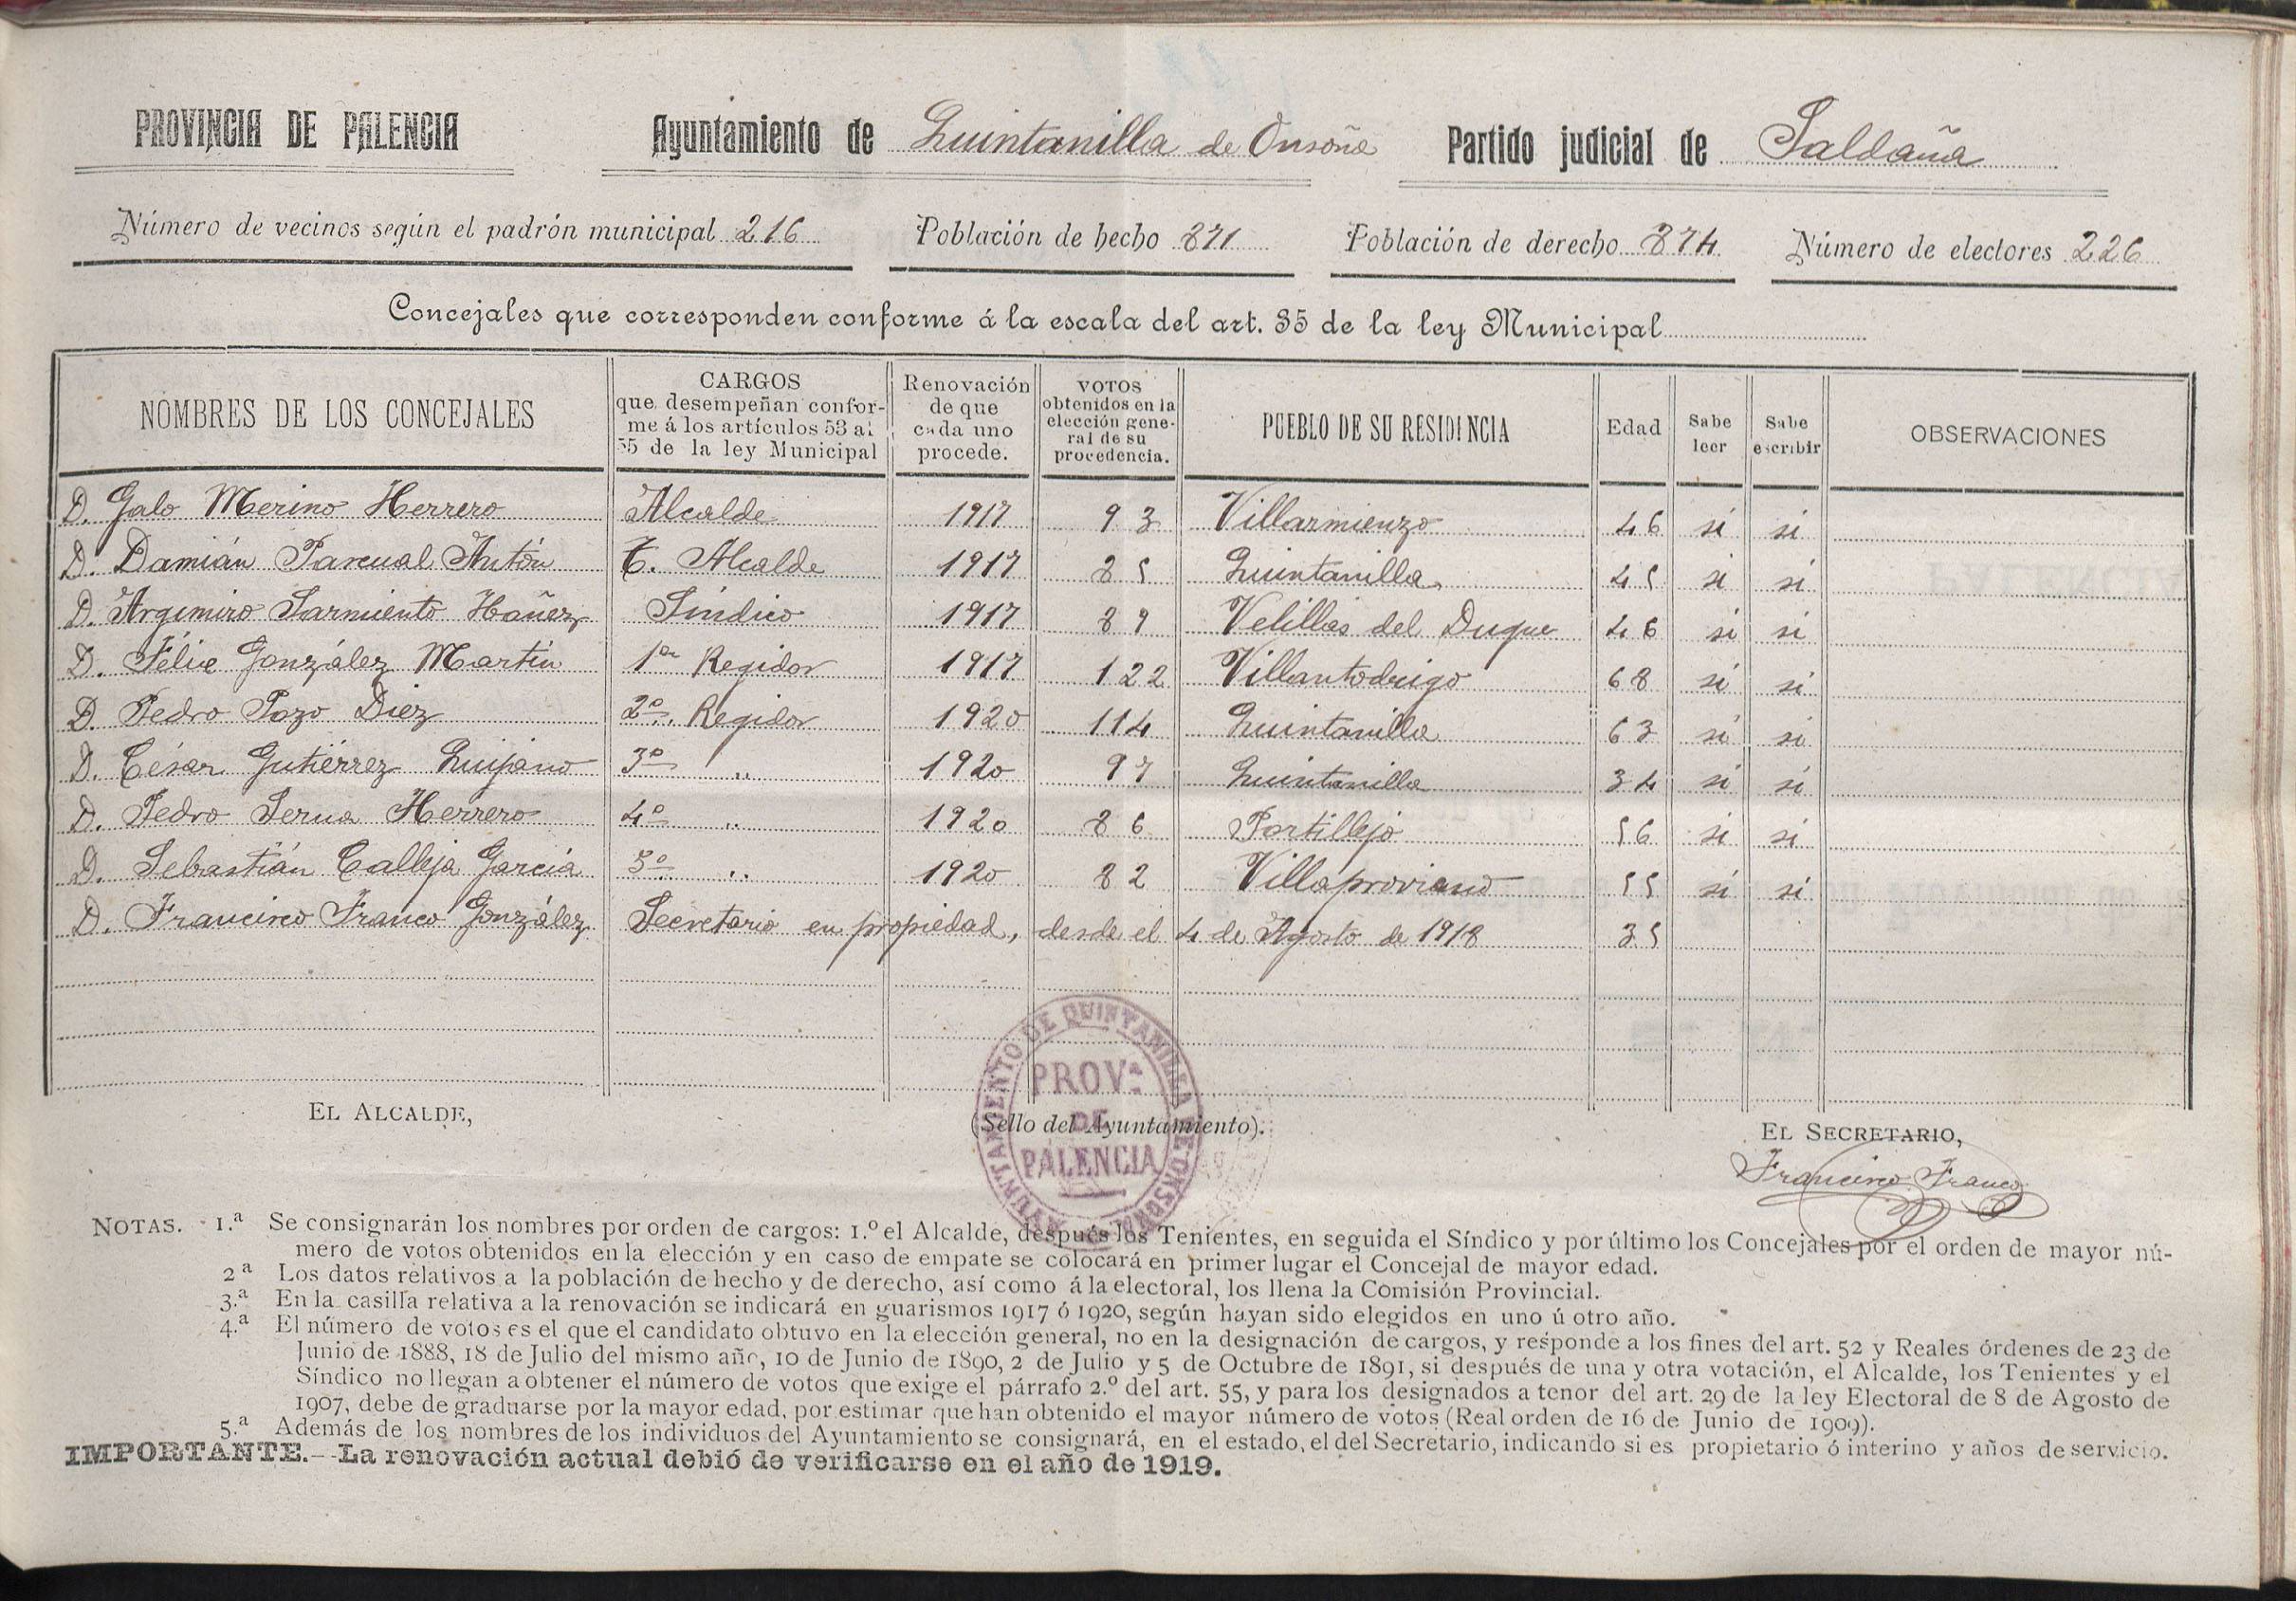 PROVINCIA DE PALENCIA Ayuntamiento de Quintanilla de Onsoña Partido judicial de Saldaña
Número de vecinos según el padrón municipal 216 Población de hecho 871 Población de derecho 874 Número de electores 226
Concejales que corresponden conforme á la escala del art. 35 de la ley Municipal
NOMBRES DE LOS CONCEJALES
CARGOS
que desempeñan confor-
me á los artículos 53 al
55 de la ley Municipal
Renovación
de que
cada uno
procede.
VOTOS
obtenidos en la
elección gene-
ral de su
procedencia.
PUEBLO DE SU RESIDENCIA
Edad
Sabe
leer
Sabe
escribir
OBSERVACIONES
D. Galo Merino Herrero Alcalde 1917 93 Villarmienzo 46 si si
D. Damián Pascual Antón T. Alcalde 1917 85 Quintanilla 45 si si
D. Argimiro Sarmiento Ibañez Síndico 1917 89 Velillas del Duque 46 si si
D. Félix González Martín 1er Regidor 1917 122 Villantodrigo 68 si si
D. Pedro Pozo Diez 2º Regidor 1920 114 Quintanilla 63 si si
D. César Gutiérrez Quijano 3º " 1920 97 Quintanilla 34 si si
D. Pedro Serna Herrero 4º " 1920 86 Portillejo 56 si si
D. Sebastián Calleja García 5º " 1920 82 Villaproviano 55 si si
D. Francisco Franco González Secretario en propiedad, desde el 4 de Agosto de 1918 35
EL ALCALDE,
(Sello del Ayuntamiento).
EL SECRETARIO,
AYUNTAMIENTO DE QUINTANILLA DE ONSOÑA
PROVª
DE
PALENCIA
Francisco Franco
NOTAS. 1.ª Se consignarán los nombres por orden de cargos: 1.º el Alcalde, después los Tenientes, en seguida el Síndico y por último los Concejales por el orden de mayor nú-
mero de votos obtenidos en la elección y en caso de empate se colocará en primer lugar el Concejal de mayor edad.
2ª Los datos relativos a la población de hecho y de derecho, así como á la electoral, los llena la Comisión Provincial.
3.ª En la casilla relativa a la renovación se indicará en guarismos 1917 ó 1920, según hayan sido elegidos en uno ú otro año.
4.ª El número de votos es el que el candidato obtuvo en la elección general, no en la designación de cargos, y responde a los fines del art. 52 y Reales órdenes de 23 de
Junio de 1888, 18 de Julio del mismo año, 10 de Junio de 1890, 2 de Julio y 5 de Octubre de 1891, si después de una y otra votación, el Alcalde, los Tenientes y el
Síndico no llegan a obtener el número de votos que exige el párrafo 2.º del art. 55, y para los designados a tenor del art. 29 de la ley Electoral de 8 de Agosto de
1907, debe de graduarse por la mayor edad, por estimar que han obtenido el mayor número de votos (Real orden de 16 de Junio de 1909).
5.ª Además de los nombres de los individuos del Ayuntamiento se consignará, en el estado, el del Secretario, indicando si es propietario ó interino y años de servicio.
IMPORTANTE.—La renovación actual debió de verificarse en el año de 1919.